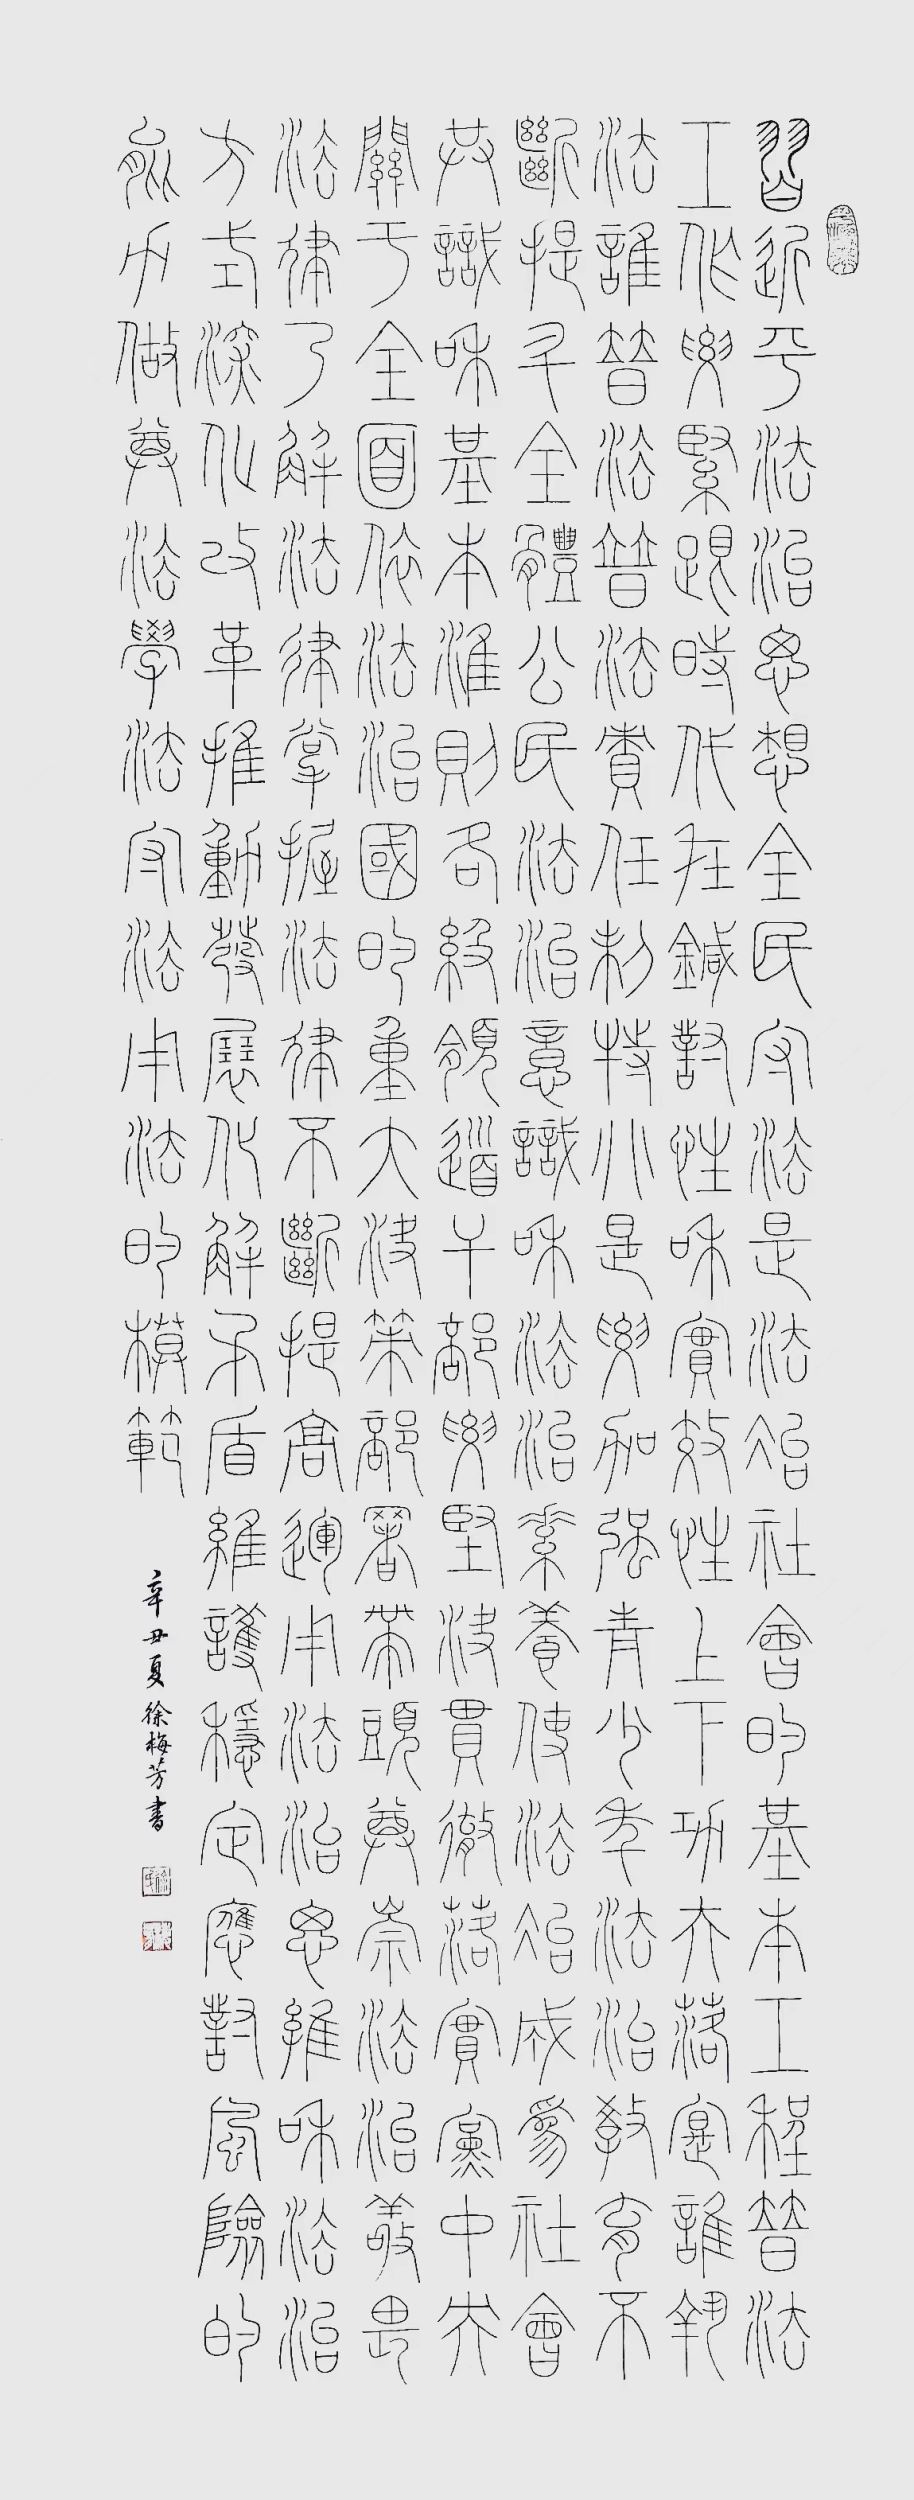 習近平法治思想全民守法是法治社會的基本工程普法
工作要緊跟時代在鍼對性和實效性上下功夫落寔誰執
法誰普法普法責任制特別是要加强青少年法治教育不
斷提升全體公民法治意識和法治素養使法治成爲社會
共識和基本準則各級領道干部要堅決貫徹落實黨中央
關于全面依法治國的重大決策部署帶頭尊崇法治敬畏
法律了解法律掌握法律不斷提高運用法治思維和法治
方式深化改革推動發展化解矛盾維護穩定應對風險的
能力做尊法學法守法用法的模範
辛丑夏徐梅芳書